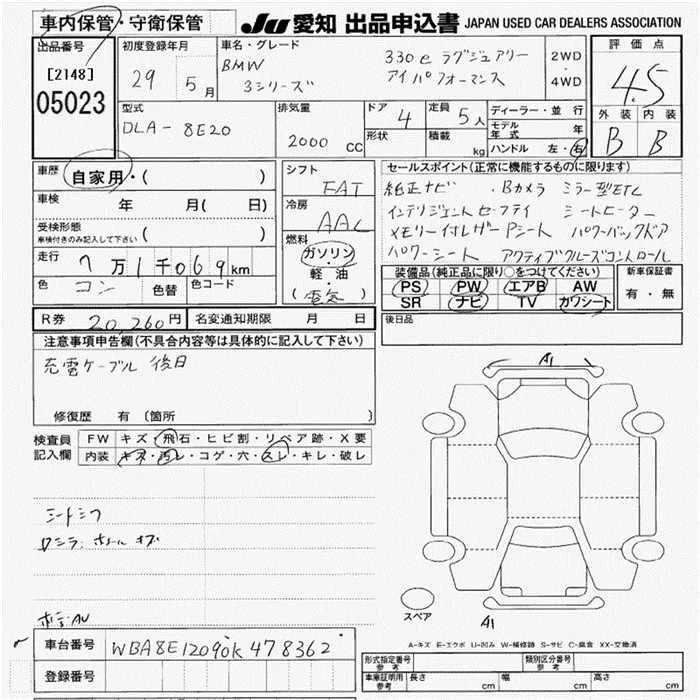 車内保管・守衛保管 JU 愛知 出品申込書 JAPAN USED CAR DEALERS ASSOCIATION
出品番号 [2148] 05023
初度登録年月 29 5 月
車名・グレード BMW 3シリーズ 330e ラグジュアリー アイパフォーマンス
2WD ・ 4WD
評価点 4.5
外装 内装
B B
型式 DLA-8E20
排気量 2000 CC
ドア 4 定員 5人
形状 積載 kg
ディーラー・並行
モデル年式 年
ハンドル 左・右
車歴 自家用・( )
車検 年 月( 日)
受検形態 車検付きのみ記入して下さい ( )
走行 7万1千069km
色 コン 色替 色コード
シフト FAT
冷房 AAC
燃料 ガソリン・軽油 (電気)
セールスポイント(正常に機能するものに限ります)
純正ナビ ・Bカメラ ミラー型ETC
インテリジェントセーフティ シートヒーター
メモリー付レザーPシート パワーバックドア
パワーシート アクティブクルーズコントロール
装備品(純正品に限り○をつけてください)
PS PW エアB AW
SR ナビ TV カワシート
新車保証書 有・無
R券 20,260円 名変通知期限 月 日
後日品
注意事項申告欄(不具合内容等は具体的に記入して下さい)
充電ケーブル 後日
修復歴 有 〔箇所 〕
検査員記入欄
FW キズ・飛石・ヒビ割・リペア跡・X要
内装 キズ・汚レ・コゲ・穴・スレ・キレ・破レ
シートシワ
A1
A1
スペア
A-キズ E-エクボ U-凹み W-補修跡 S-サビ C-腐食 XX-交換済
車台番号 WBA8E12090K478362
登録番号
形式指定番号 参考 類別区分番号 参考
車庫証明用 参考 長さ cm 幅 cm 高さ cm